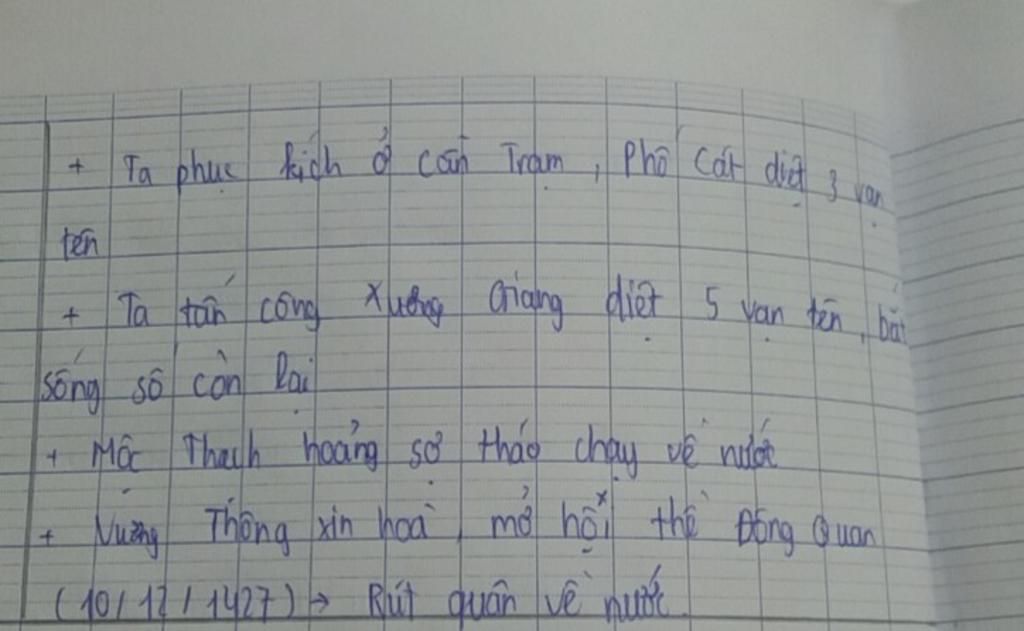 + Ta phục kích ở cần Trạm, Phố Cát diệt 3 vạn
tên
+ Ta tấn công Xương Giang diệt 5 vạn tên, bắt
sống số còn lại
+ Mộc Thạch hoảng sợ tháo chạy về nước
+ Vương Thông xin hoà, mở hội thề Đông Quan
(10/12/1427) → Rút quân về nước.